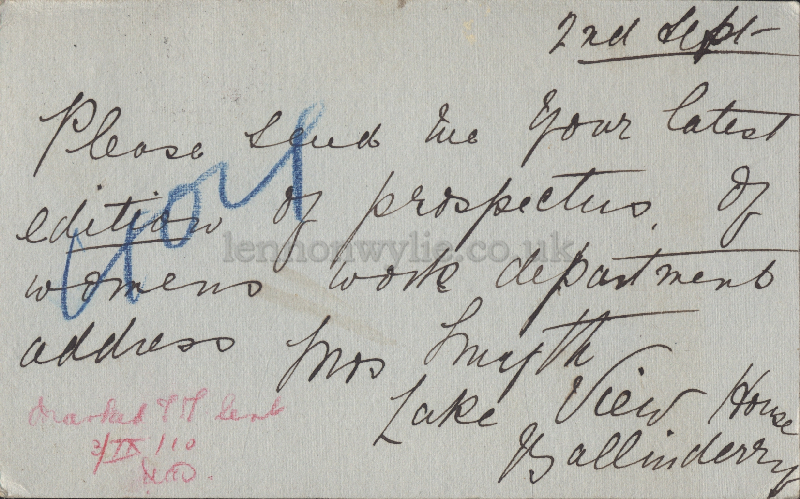 2nd Sept
Please send me your latest
edition of prospectus, of
womens work department
address Mrs Smyth
Lake View House
Ballinderry
Marked T.T. sent
3/IX/10
lennonwylie.co.uk